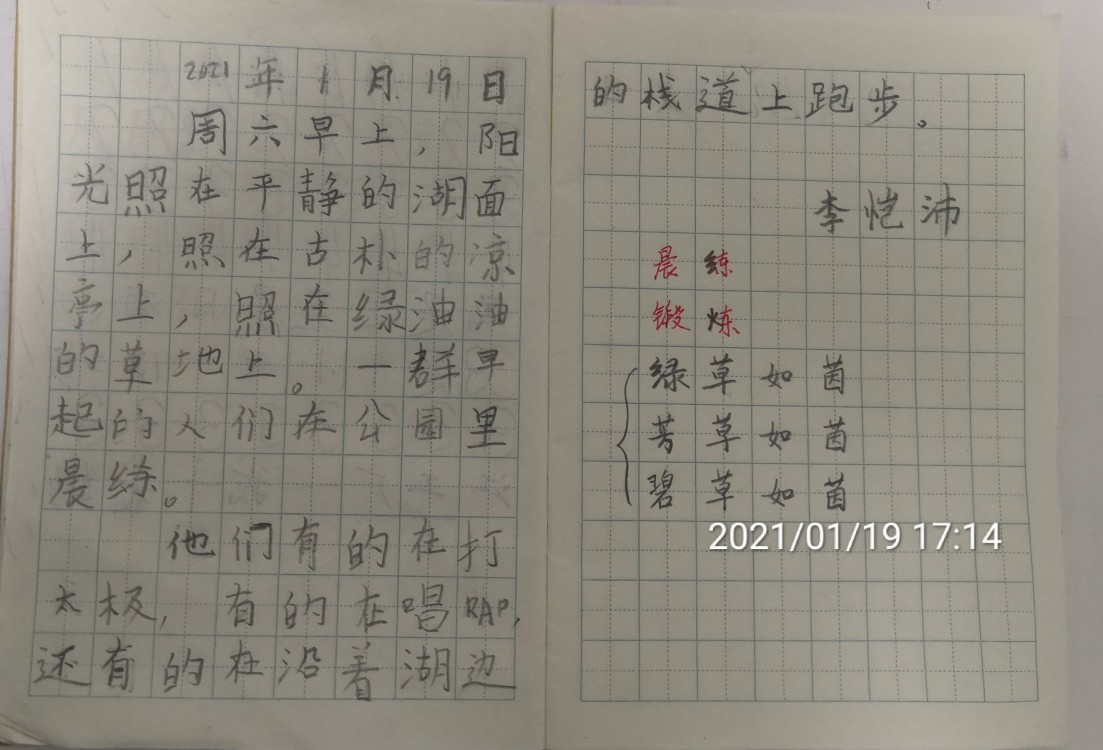 2021年1月19日
周六早上，阳
光照在平静的湖面
上，照在古朴的凉
亭上，照在绿油油
的草地上。一群早
起的人们在公园里
晨练。
他们有的在打
太极，有的在唱RAP，
还有的在沿着湖边
的栈道上跑步。
李恺沛
晨练
锻炼
绿草如茵
芳草如茵
碧草如茵
2021/01/19 17:14